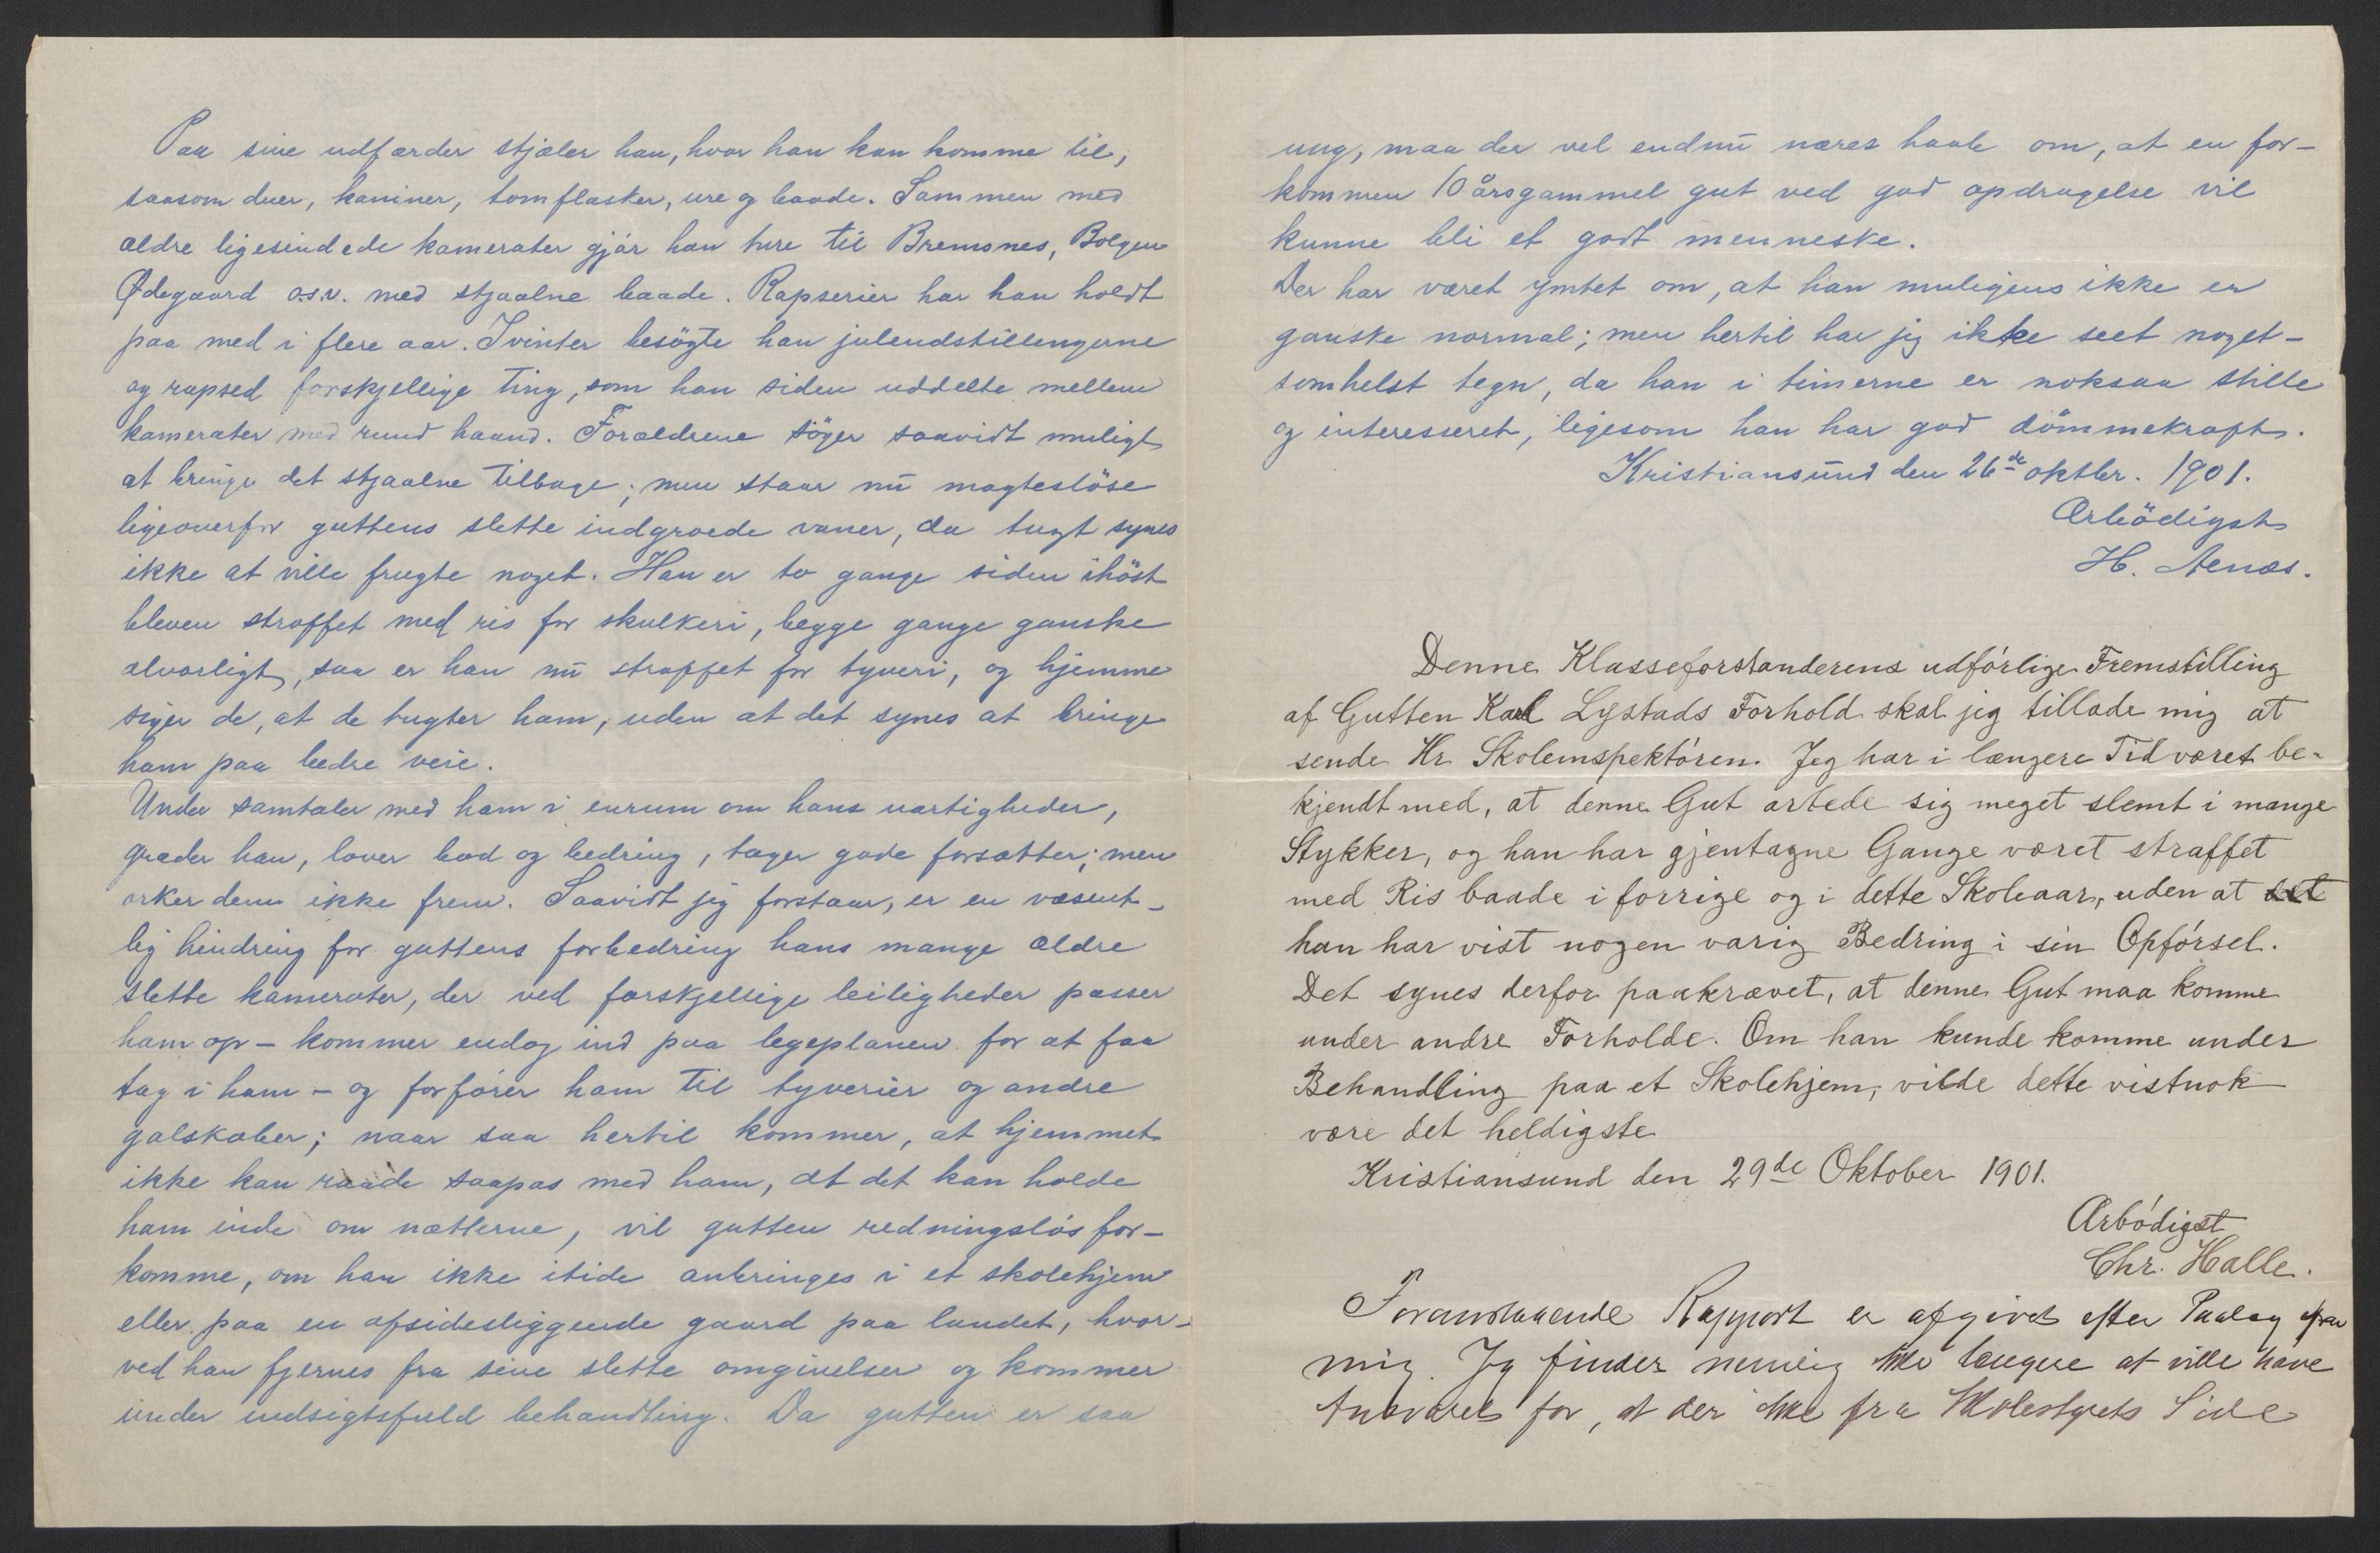 Paa sine udfærder stjæler han, hvor han kan komme til,
saasom duer, kaniner, tomflasker, ure og baade. Sammen med
ældre ligesindede kamerater gjør han ture til Bremsnes, Bolgen
Ødegaard o.s.v. med stjaalne baade. Rapserier har han holdt
paa med i flere aar. Ivinter besögte han juleudstillingerne
og rapsed forskjellige ting, som han siden uddelte mellem
kamerater med rund haand. Forældrene söger saavidt muligt
at bringe det stjaalne tilbage; men staar nū magteslöse
ligeoverfor guttens slette indgroede vaner, da tugt synes
ikke at ville frugte noget. Han er to gange siden ihöst
bleven straffet med ris for skulkeri, begge gange ganske
alvorligt, saa er han nū straffet for tyveri, og hjemme
siger de, at de tugter ham, uden at det synes at bringe
ham paa bedre veie.
Under samtaler med ham i enrum om hans uartigheder,
græder han, lover bod og bedring, tager gode forsætter; men
orker dem ikke frem. Saavidt jeg forstaar, er en væsent-
lig hindring for guttens forbedring hans mange ældre
slette kamerater, der ved forskjellige leiligheder passer
ham op – kommer endog ind paa legeplanen for at faa
tag i ham – og forfører ham til tyverier og andre
galskaber; naar saa hertil kommer, at hjemmet
ikke kan raade saapas med ham, at det kan holde
ham inde om nætterne, vil gutten redningsløs for-
komme, om han ikke itide anbringes i et skolehjem
eller paa en afsidesliggende gaard paa landet, hvor-
ved han fjernes fra sine slette omgivelser og kommer
under indsigtsfuld behandling. Da gutten er saa
ung, maa der vel endnū næres haab om, at en for-
kommen 10 årsgammel gut ved god opdragelse vil
kunne bli et godt menneske.
Der har været ymtet om, at han muligens ikke er
ganske normal; men hertil har jeg ikke seet noget-
somhelst tegn, da han i timerne er noksaa stille
og interesseret, ligesom han har god dömmekraft.
Kristiansūnd den 26de oktbr. 1901.
Ærbödigst
H. Aenæs.
Denne Klasseforstanderens udførlige Fremstilling
af Gutten Karl Lystads Forhold skal jeg tillade mig at
sende Hr. Skoleinspektøren. Jeg har i længere Tid været be-
kjendt med, at denne Gut artede sig meget slemt i mange
Stykker, og han har gjentagne Gange været straffet
med Ris baade i forrige og i dette Skoleaar, uden at
han har vist nogen varig Bedring i sin Opførsel.
Det synes derfor paakrævet, at denne Gut maa komme
under andre Forholde. Om han kunde komme under
Behandling paa et Skolehjem, vilde dette vistnok
være det heldigste
Kristiansund den 29de Oktober 1901.
Ærbødigst
Chr. Halle.
Foranstaaende Rapport er afgivet efter Paalæg fra
mig. Jeg finder nemlig ikke længere at ville have
Ansvaret for, at der ikke fra Skolestyrets Side